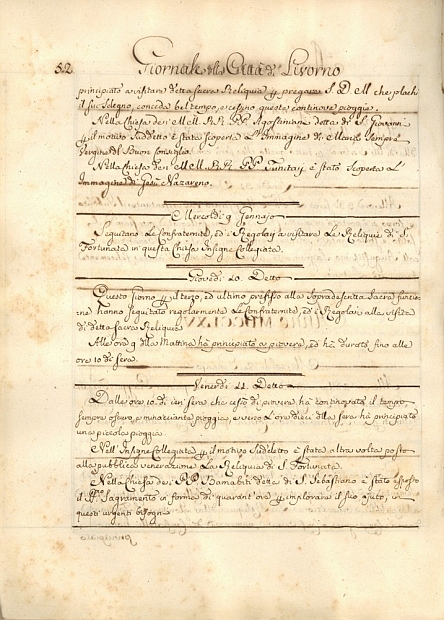 52 Giornale della Città di Livorno
principiato a visitare detta sacra Reliquia per pregare S. D. M. che plachi
il suo sdegno, conceda bel tempo, e cessino queste continove piogge.
Nella Chiesa dei M. M. R. R. P. P. Agostiniani detta di S. Giovanni
per il motivo suddetto è stata scoperta L'Immagine di Maria sempre
Vergine del Buon Consiglio.
Nella Chiesa dei M. M. R. R. P. P. Trinitarj è stato scoperto L'
Immagine di Gesù Nazareno.
Mercoldì 9 Gennajo
Seguitano Le Confraternite, ed i Regolari a visitare La Reliquia di S.
Fortunata in questa Chiesa Insigne Collegiata.
Giovedì 10. Detto
Questo Giorno per il terzo, ed ultimo prefisso alla sopradescritta sacra funzione
hanno seguitato regolarmente Le Confraternite, ed i Regolari alla visita
di detta sacra Reliquia.
Alle ore 9 della Mattina ha principiato a piovere, ed ha durato fino alle
ore 10 di sera.
Venerdì 11. Detto
Dalle ore 10. di ieri sera che cessò di piovere, ha continovato il tempo
sempre oscuro, e minacciante pioggia, e verso L'ore dieci della sera ha principiato
una piccola pioggia.
Nell'Insigne Collegiata per il motivo suddetto è stata altra volta posta
alla pubblica venerazione La Reliquia di S. Fortunata.
Nella Chiesa dei R. R. P. P. Barnabiti detta di S. Sebastiano è stato esposto
il SS. Sagramento in forma di quarant'ore per implorare il suo ajuto, in
questi urgenti bisogni.